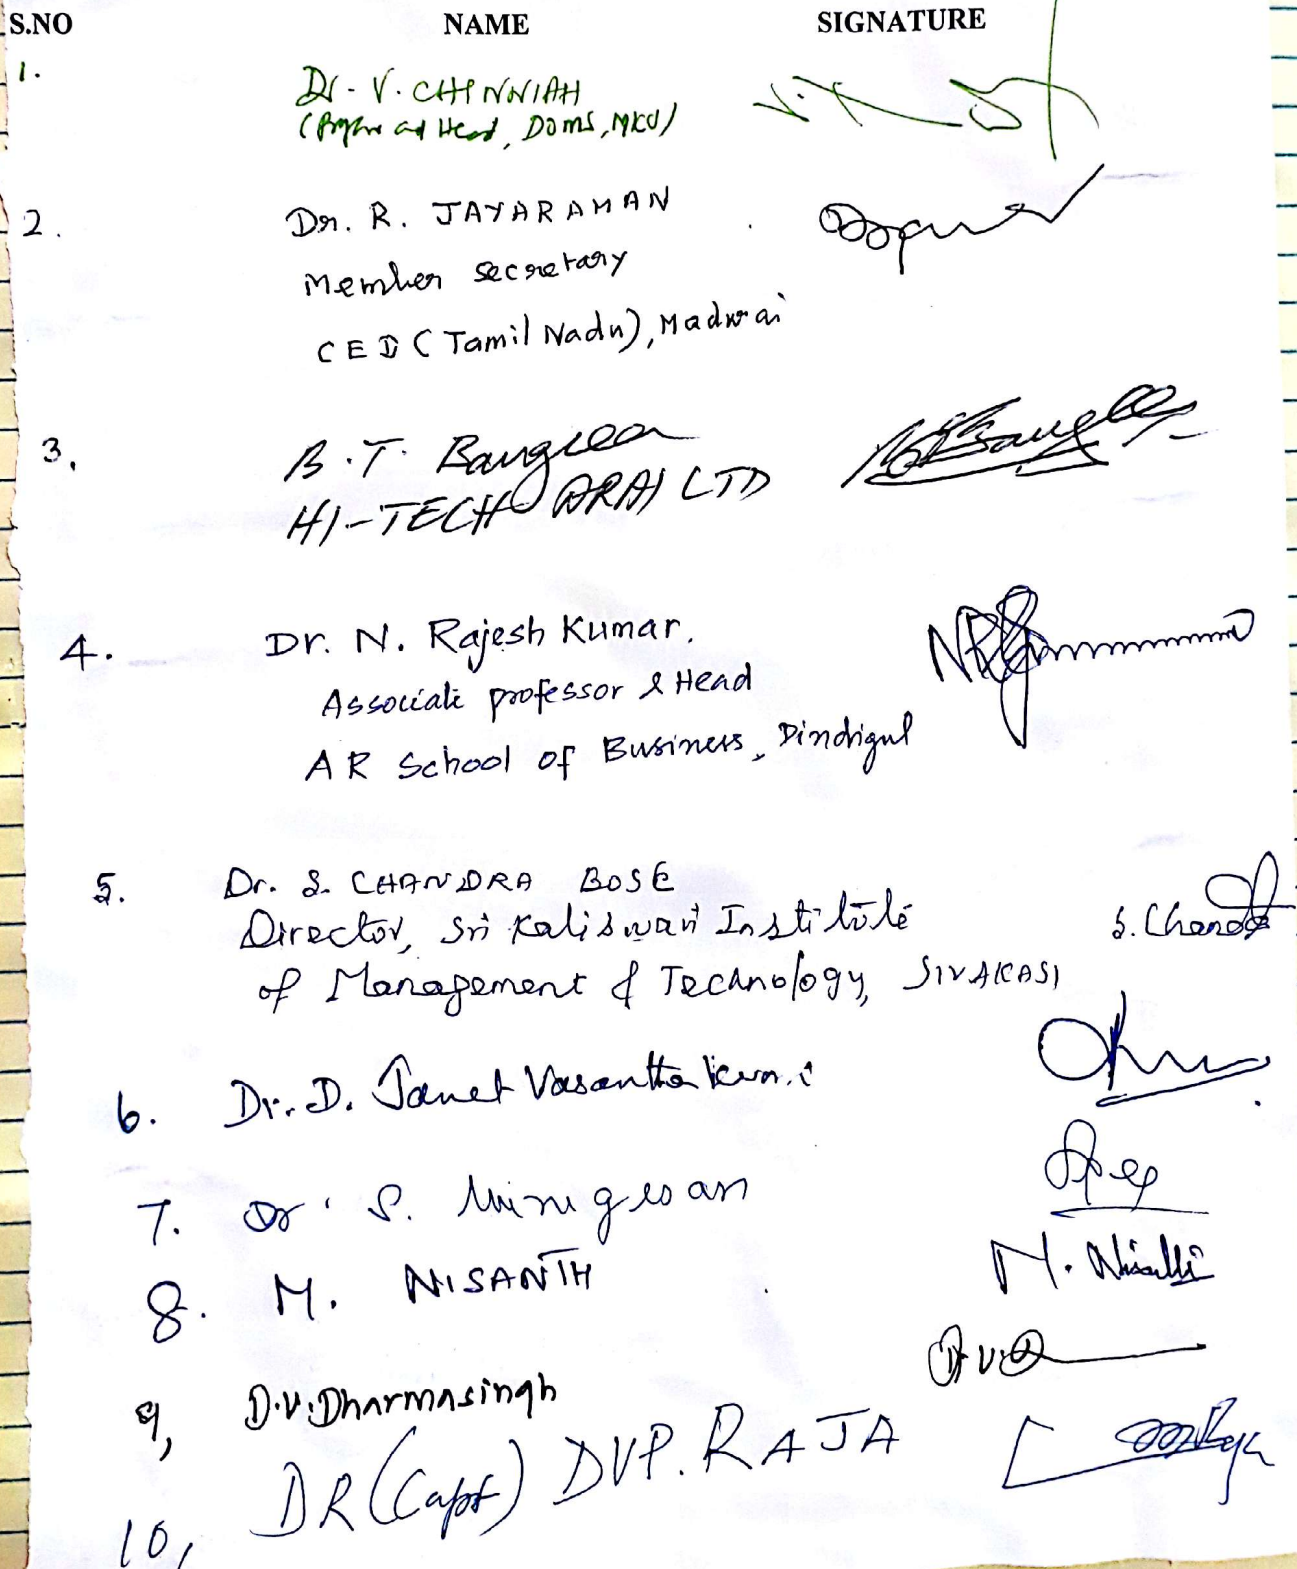 S.NO NAME SIGNATURE
1. Dr. V. CHINNIAH
( and Head, DOMS, MKU)
2. Dr. R. JAYARAMAN
Member Secretary
CED (Tamil Nadu), Madurai
3, B.T. Bangera
HI-TECH ARAI LTD
4. Dr. N. Rajesh Kumar.
Associate professor & Head
A R School of Business, Dindigul
5. Dr. S. CHANDRA BOSE
Director, Sri Kaliswari Institute S. Chand
of Management & Technology, SIVAKASI
6. Dr. D. Janet Vasantha
7. Dr. S. Murugesan
8. M. NISANTH M. Nisanth
9, D.V. Dharmasingh
10, DR (Capt) DVP. RAJA